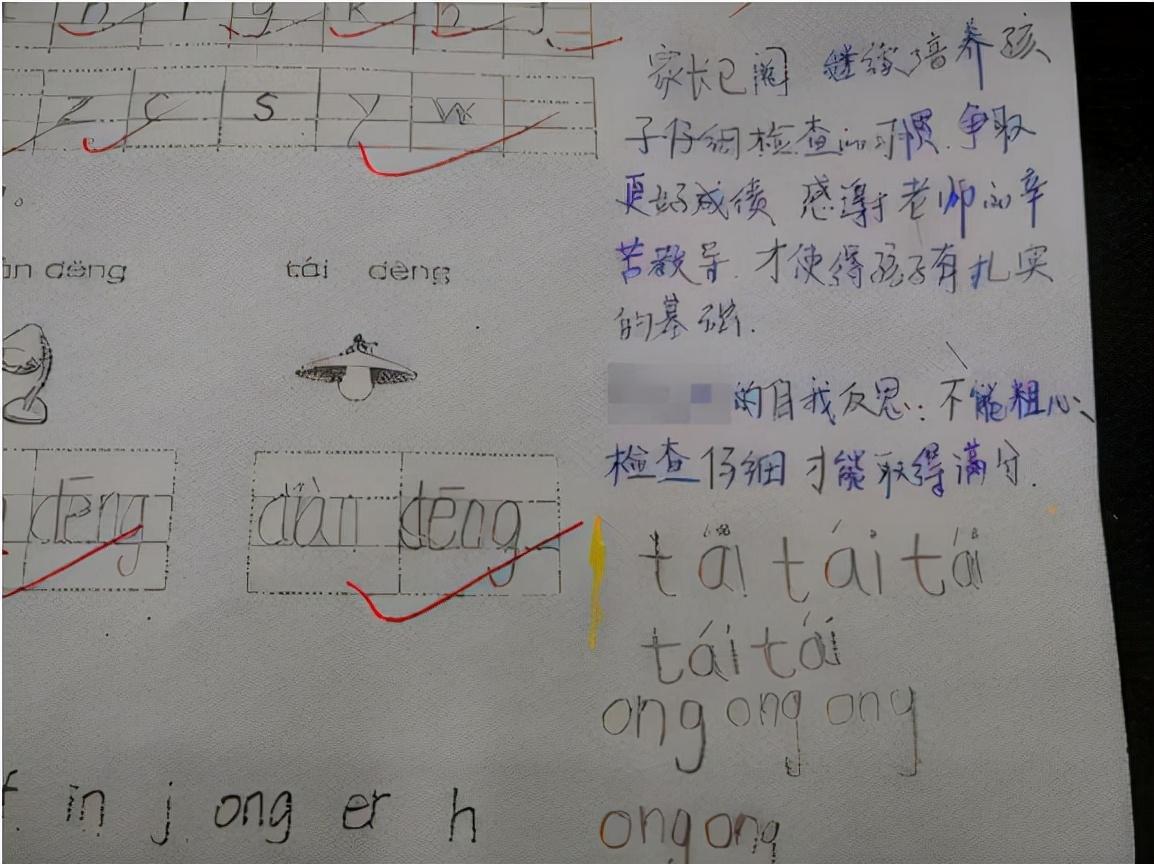 z c s y w
家长已阅 继续培养孩
子仔细检查的习惯.争取
更好成绩 感谢于老师的辛
苦教导.才使得孩子有扎实
的基础.
dēng tái dēng
的自我反思:不能粗心、
检查仔细才能取得满分.
dēng diàn dēng
tái tái tái
tái tái
ong ong ong
in j ong er h
ong ong